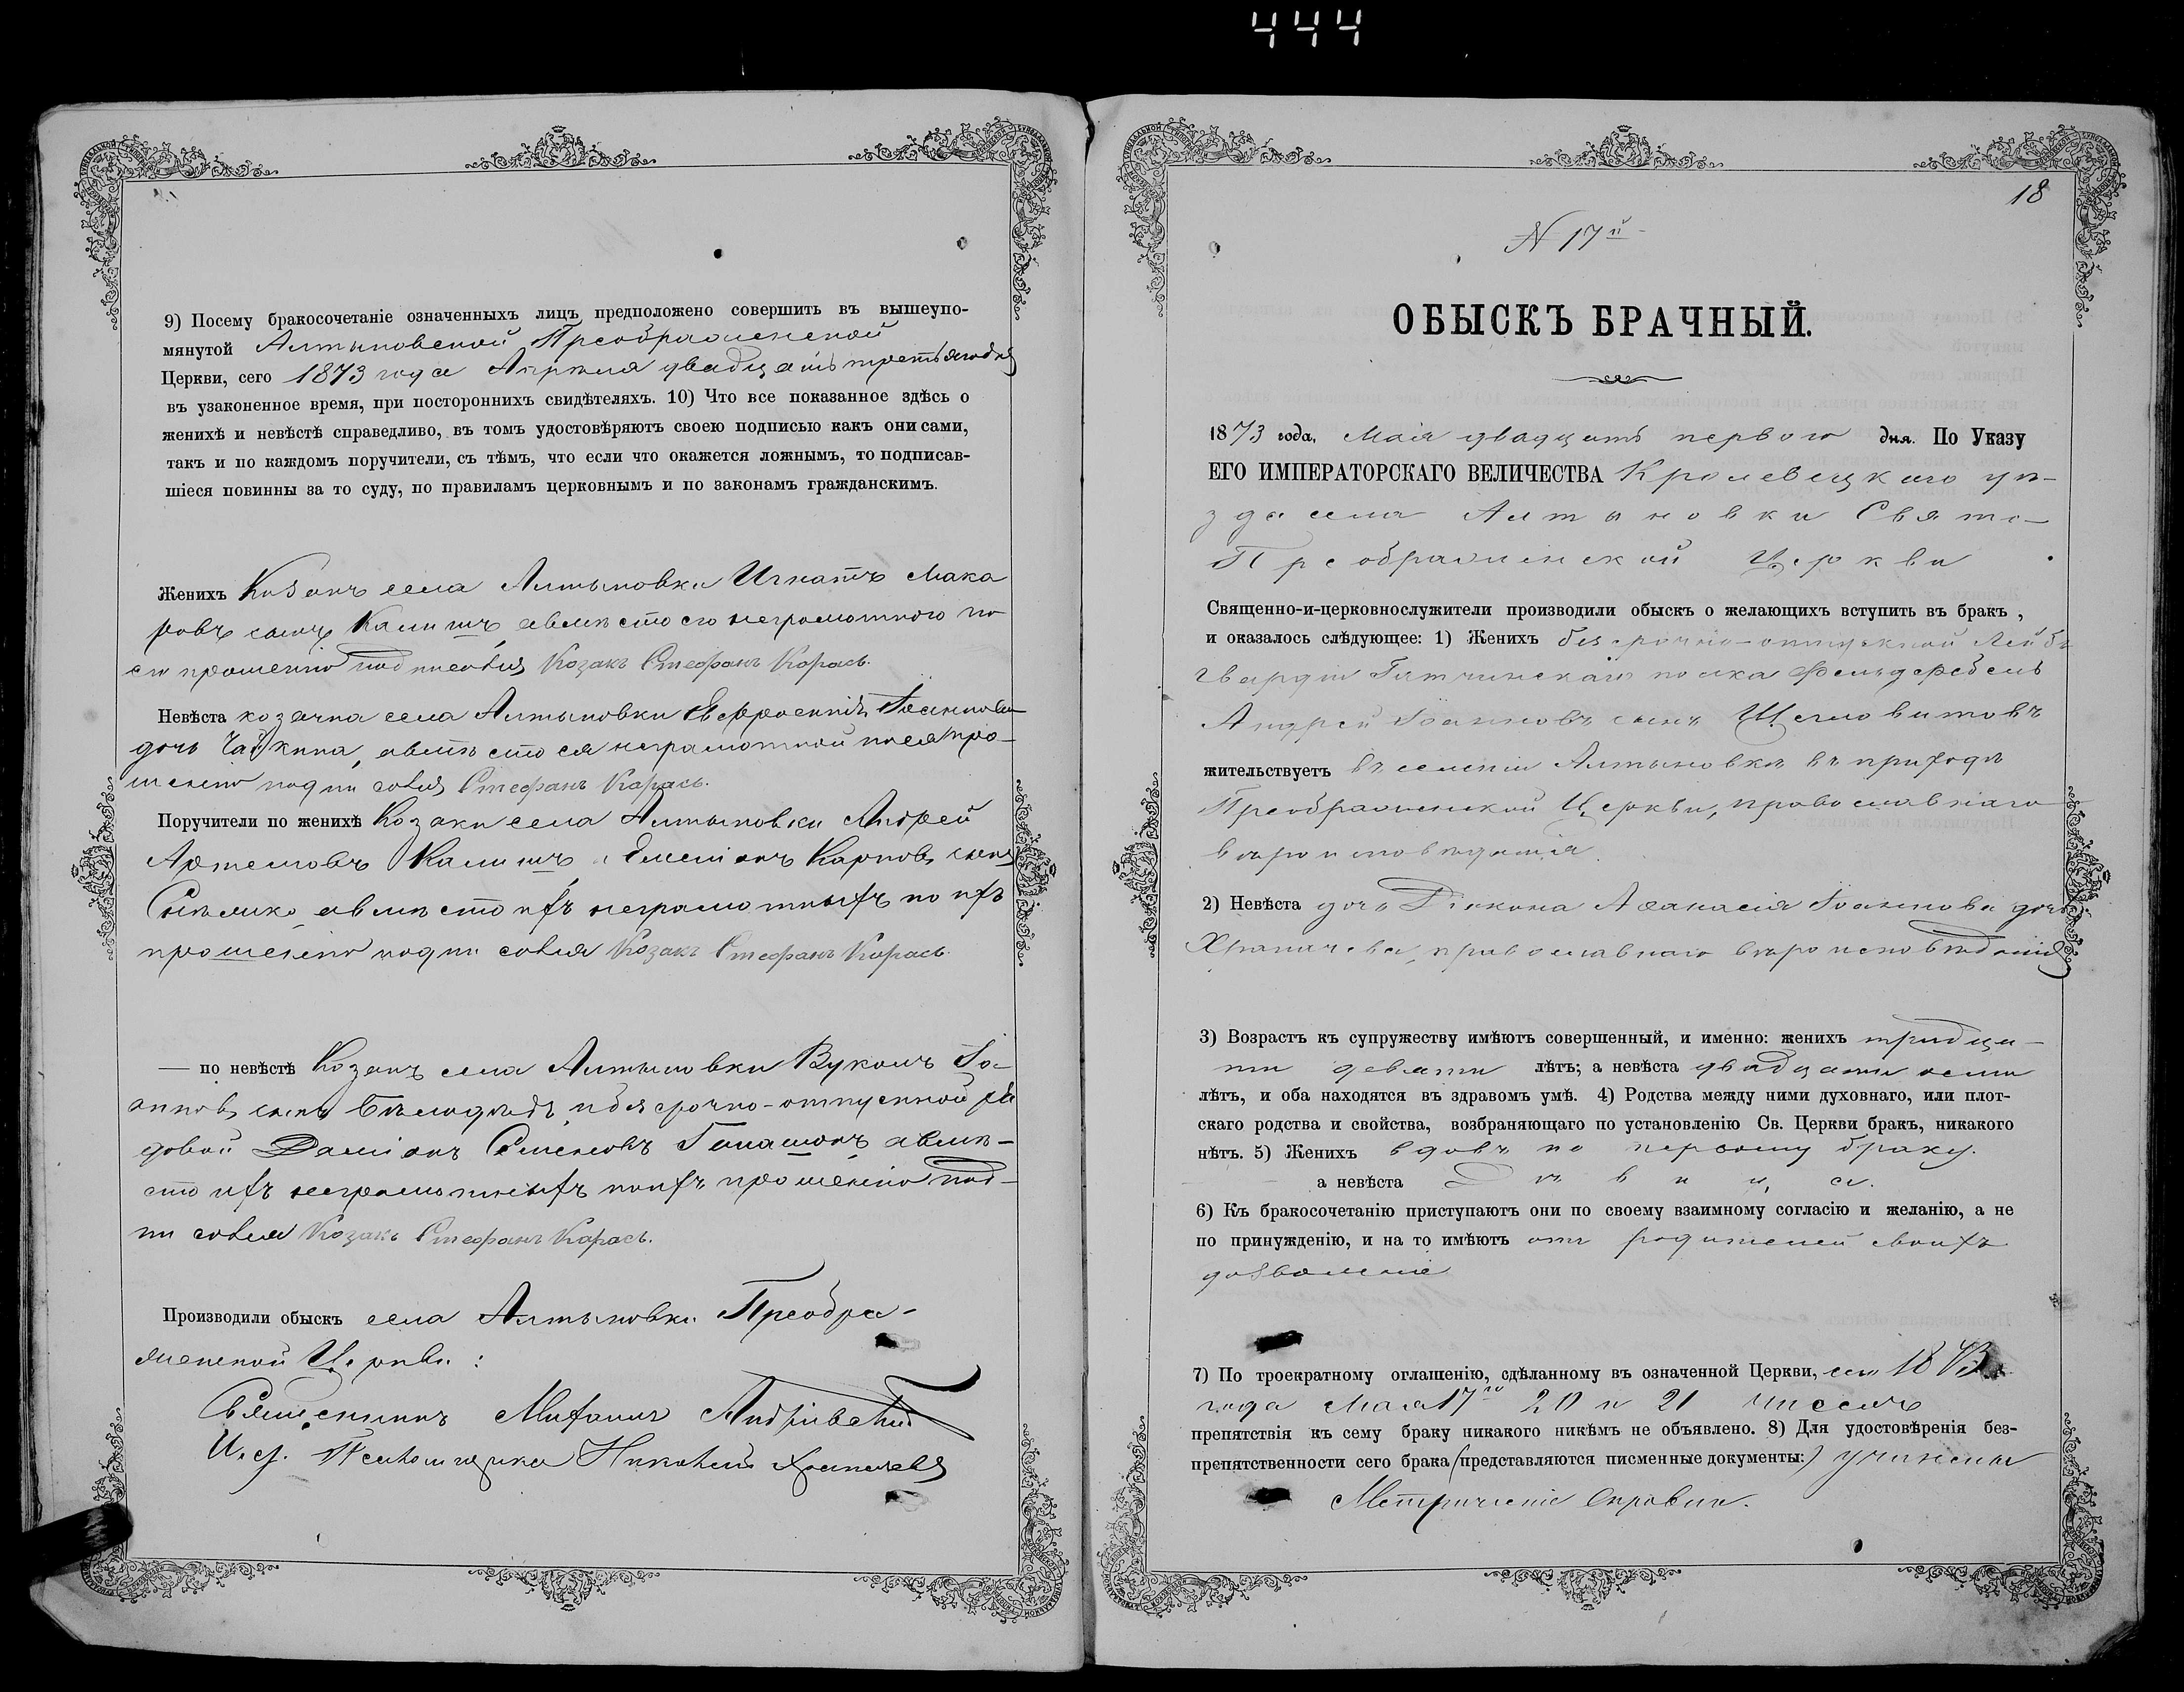 444
9) Посему бракосочетаніе означенныхъ лицъ предположено совершить въ вышеупо-
мянутой Алтыновской Преображенской
Церкви, сего 1873 года Апрѣля двадцать третьяго дня
въ узаконенное время, при постороннихъ свидѣтеляхъ. 10) Что все показанное здѣсь о
женихѣ и невѣстѣ справедливо, въ томъ удостовѣряютъ своею подписью какъ они сами,
такъ и по каждомъ поручители, съ тѣмъ, что если что окажется ложнымъ, то подписав-
шіеся повинны за то суду, по правиламъ церковнымъ и по законамъ гражданскимъ.
Женихъ Козакъ села Алтыновки Игнатъ Мака
ровъ сынъ Калишъ, авмѣсто его неграмотного по
его прошенію подписался Козакъ Стефанъ Карась.
Невѣста козачка села Алтыновки Евфросинія Іоаннова
дочь Чайкина, авмѣсто ея неграмотной по ея про-
шенію подписался Стефанъ Карась.
Поручители по женихѣ Козаки села Алтыновки Андрей
Артемовъ Калишъ, Симеонъ Карповъ сынъ
авмѣсто ихъ неграмотныхъ по ихъ
прошенію подписался Козакъ Стефанъ Карась.
— по невѣстѣ Козакъ села Алтыновки Вуколъ Іо-
анновъ сынъ Бѣлодѣдъ, и безсрочно-отпускной ря
довой Даміанъ Семеновъ авмѣ-
сто ихъ неграмотныхъ по ихъ прошенію под-
писался Козакъ Стефанъ Карась.
Производили обыскъ села Алтыновки Преобра-
женской Церкви:
Священникъ Михаилъ Андріевскій
И. д. Псаломщика Николай Храпачевъ
18
N 17й
ОБЫСКЪ БРАЧНЫЙ.
1873 года, Маія двадцать первого дня. По Указу
ЕГО ИМПЕРАТОРСКАГО ВЕЛИЧЕСТВА Кролевецкаго уѣ-
зда села Алтыновки Свято-
Преображенской Церкви
Священно-и-церковнослужители производили обыскъ о желающихъ вступить въ бракъ ,
и оказалось слѣдующее: 1) Женихъ безсрочно-отпускной Лейбъ
гвардіи Гатчинскаго полка Фельдфебель
Андрей Іоанновъ сынъ Щегловитовъ
жительствуетъ въ селеніи Алтыновкѣ въ приходѣ
Преображенской Церкви, православнаго
вѣроисповѣданія.
2) Невѣста дочь Діакона Аѳанасія Іоаннова дочь
Храпачева, православнаго вѣроисповѣданія
3) Возрастъ къ супружеству имѣютъ совершенный, и именно: женихъ тридца-
ти девяти лѣтъ; а невѣста двадцати осми
лѣтъ, и оба находятся въ здравомъ умѣ. 4) Родства между ними духовнаго, или плот-
скаго родства и свойства, возбраняющаго по установленію Св. Церкви бракъ, никакого
нѣтъ. 5) Женихъ вдовъ по первому браку.
а невѣста Дѣвица.
6) Къ бракосочетанію приступаютъ они по своему взаимному согласію и желанію, а не
по принужденію, и на то имѣютъ отъ родителей своихъ
дозволеніе
7) По троекратному оглашенію, сдѣланному въ означенной Церкви, сего 1873
года Мая 17го 20 и 21 чиселъ
препятствія къ сему браку никакого никѣмъ не объявлено. 8) Для удостовѣренія без-
препятственности сего брака (представляются писменные документы:) учинены
Метрическіе Справки.